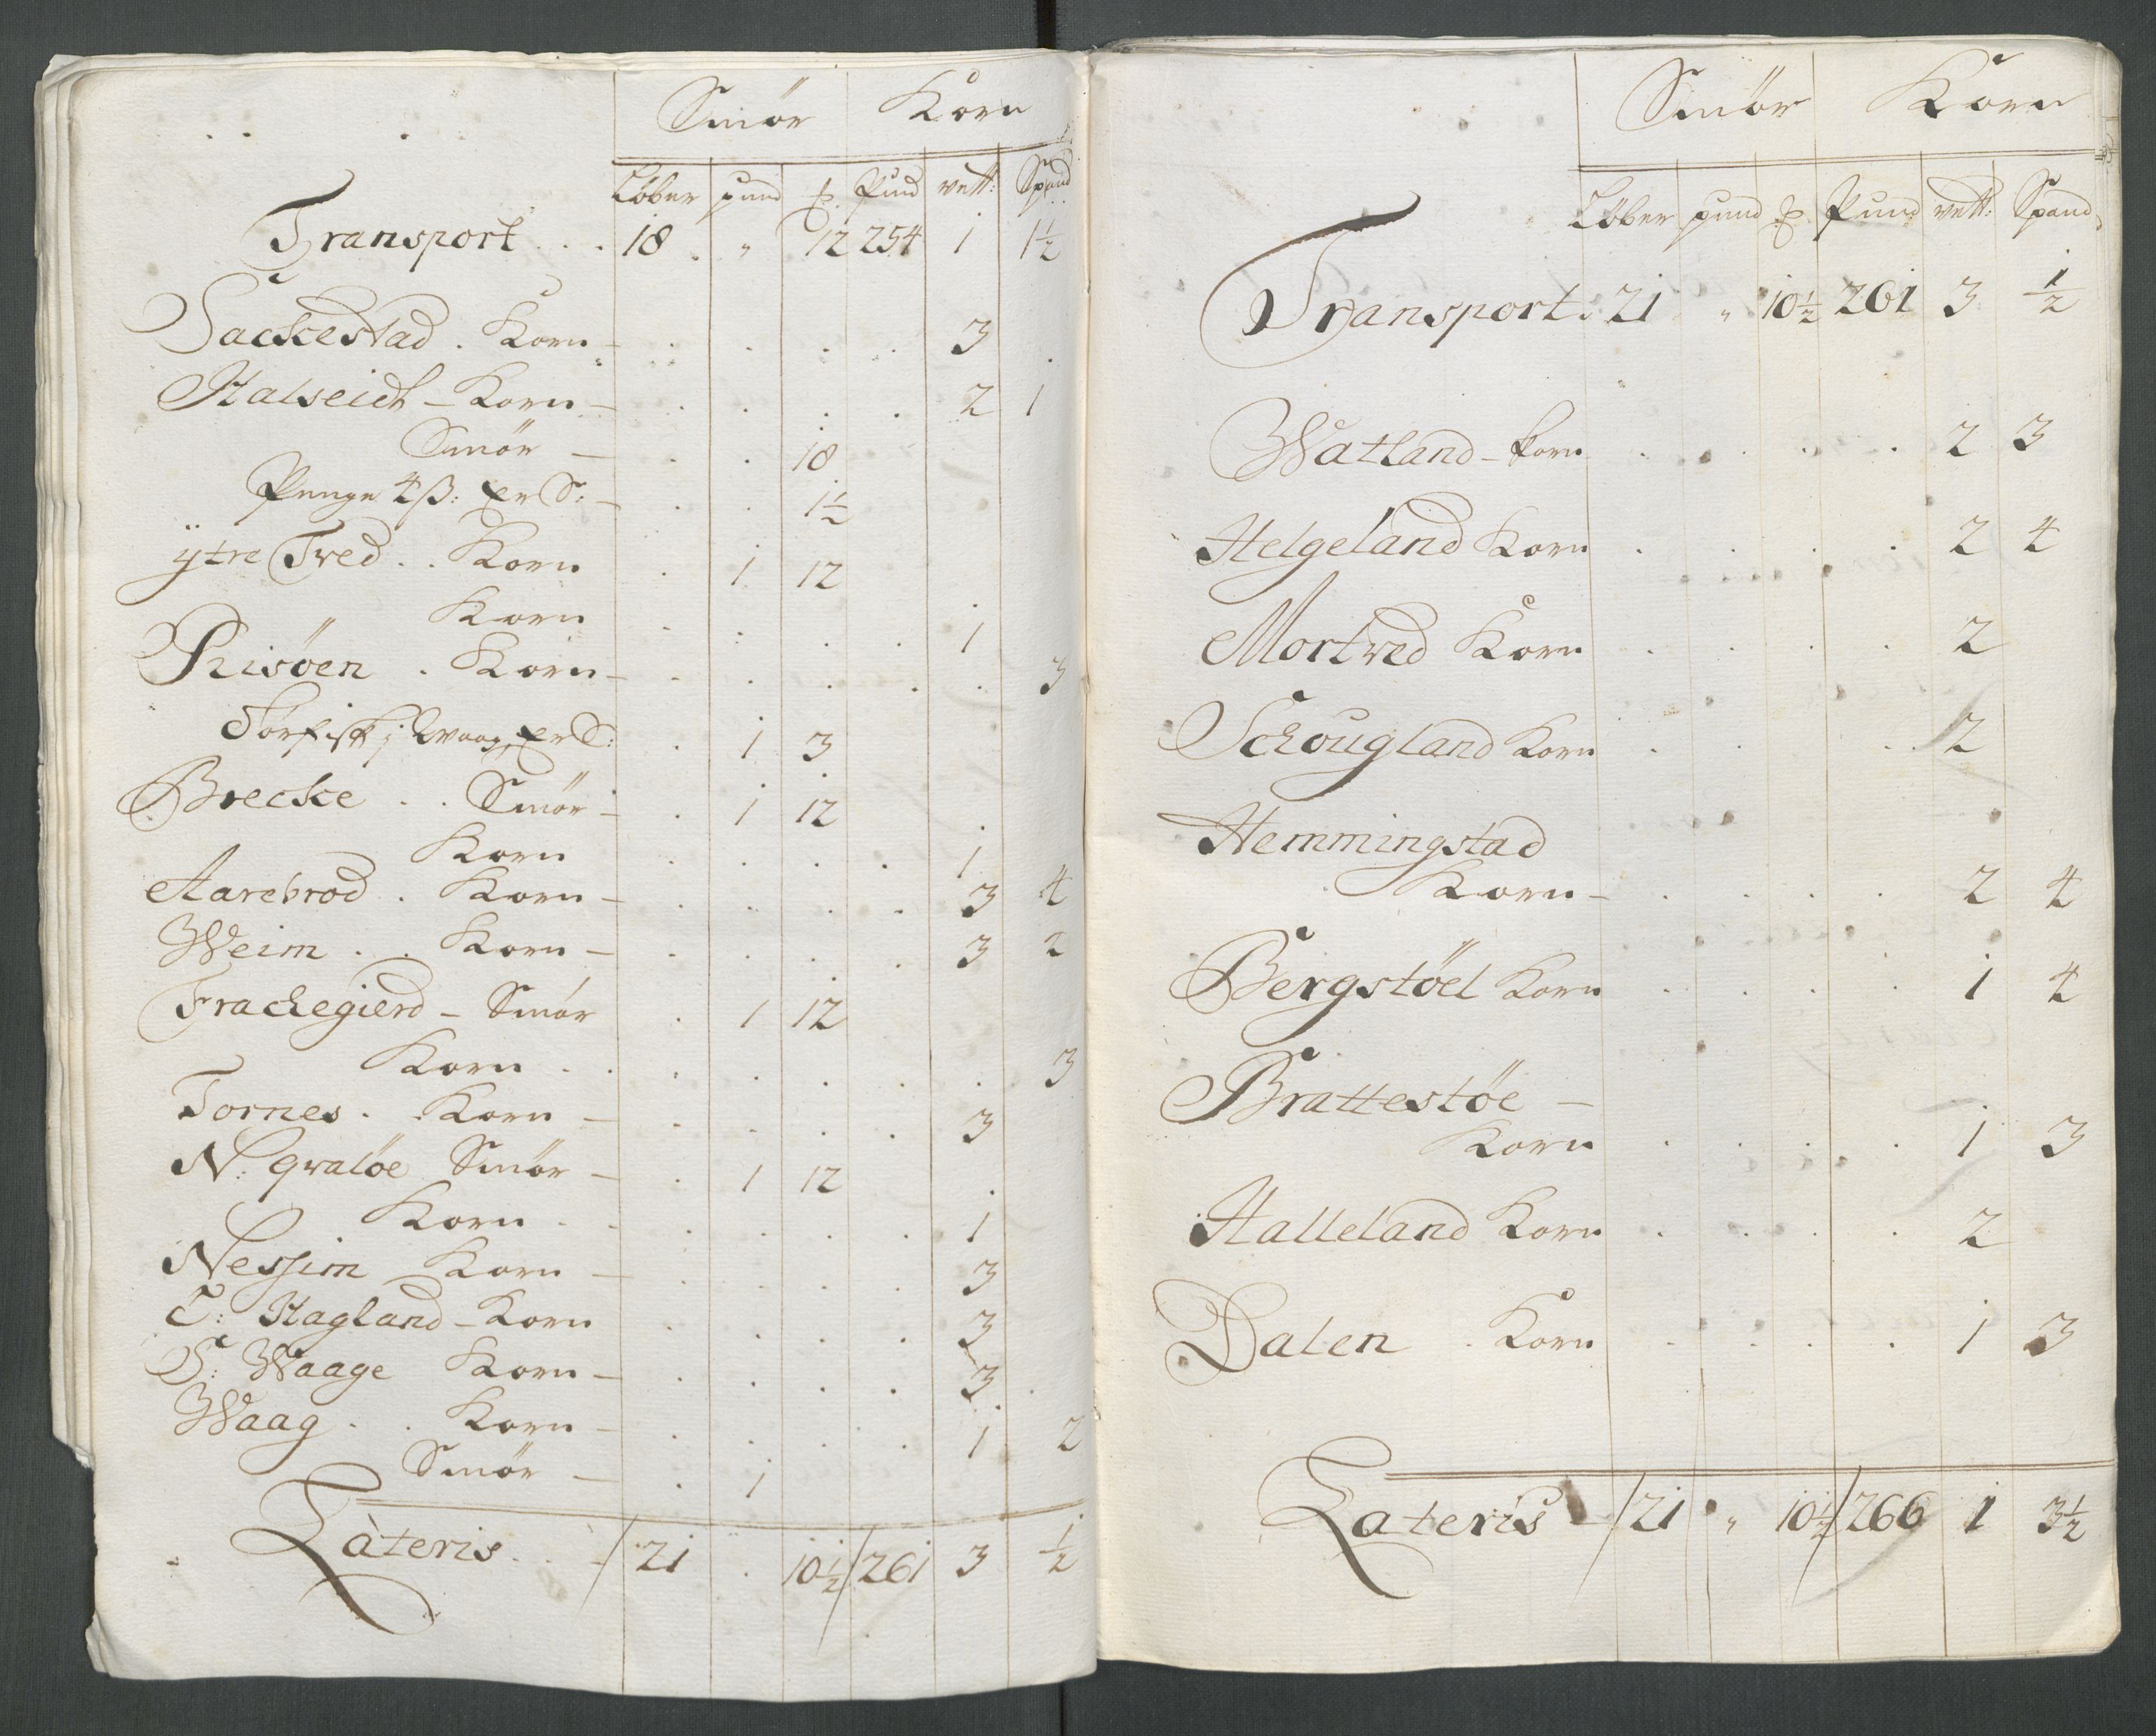 Smör Korn
Löber pund ℔. Pund vett: Spand
Transport . . . 18 . „ 12 254 1 1½
Sackestad . Korn - 3
Halseidt - Korn - 2 1
Smör - 18
Penge 4 ß: er S: - 1½
ÿtre Tved . . Korn 1 12
Korn 1
Risöen . Korn - 3
Törfisk j Waag er S: 1 3
Brecke . . Smör - 1 12
Korn 1
Aarebrod . Korn - 3 4
Weim . . Korn - 3 2
Frackegierd - Smör 1 12
Korn . . 3
Tornes . Korn - 3
N: qvalöe Smör - 1 12
Korn . . 1
Nessim Korn - 3
T: Hagland - Korn 3
S: Waage Korn - 3
Waag . . Korn - 1 2
Smör - 1
Lateris . . 21 . 10½ 261 3 ½
Smör Korn
Löber pund ℔. Pund vett: Spand
Transport: 21 „ 10½ 261 3 ½
Watland - korn 2 3
Helgeland Korn 2 4
Mortved Korn 2
Schougland Korn 2
Hemmingstad
Korn - 2 4
Bergstöel Korn 1 4
Brattestöe -
Korn 1 3
Halleland Korn 2
Dalen . Korn 1 3
Lateris - 21 „ 10½ 266 1 3½